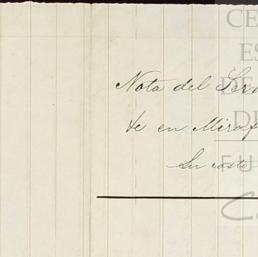 CE
ES
DE
DE
FU
Nota del Ser
Ve en Miraf
Su costo